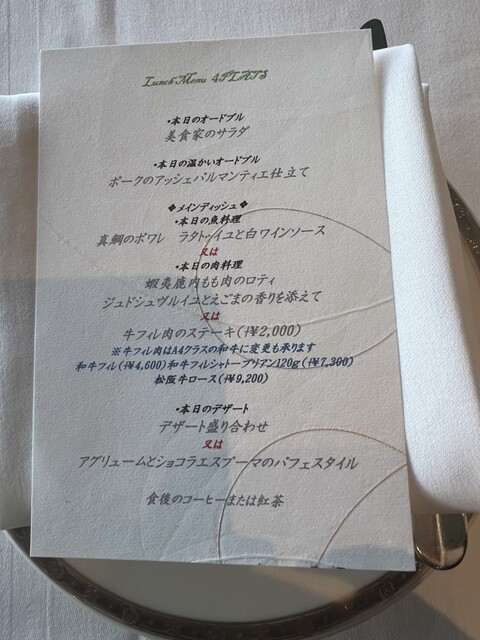 Lunch Menu 4PLATS
・本日のオードブル
美食家のサラダ
・本日の温かいオードブル
ポークのアッシェパルマンティエ仕立て
❖メインディッシュ❖
・本日の魚料理
真鯛のポワレ ラタトゥイユと白ワインソース
又は
・本日の肉料理
蝦夷鹿内もも肉のロティ
ジュドシュヴルイユとえごまの香りを添えて
又は
牛フィレ肉のステーキ(+¥2,000)
※牛フィレ肉はA4クラスの和牛に変更も承ります
和牛フィレ(+¥4,600)和牛フィレシャトーブリアン120g(+¥7,300)
松阪牛ロース(+¥9,200)
・本日のデザート
デザート盛り合わせ
又は
アグリュームとショコラエスプーマのパフェスタイル
食後のコーヒーまたは紅茶